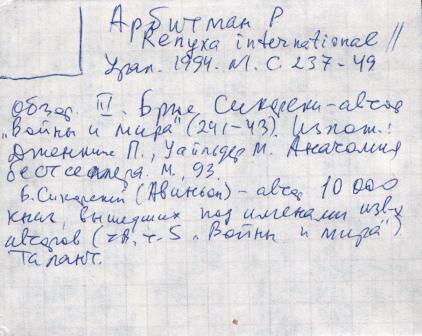 Арбитман Р
Репуха international //
Урал. 1994. М. С. 237-49
Обзор. III. Брце Сикорски-автор
"Войны и мира" (241-43). Излож.:
Дженкинс П., Уайлдер М. Анатомия
бестселлера. М., 93.
Б. Сикорский (Авиньон) - автор 10 000
книг, вышедших под именами изв-х
авторов (т.ч. "Войны и мира")
Талант.